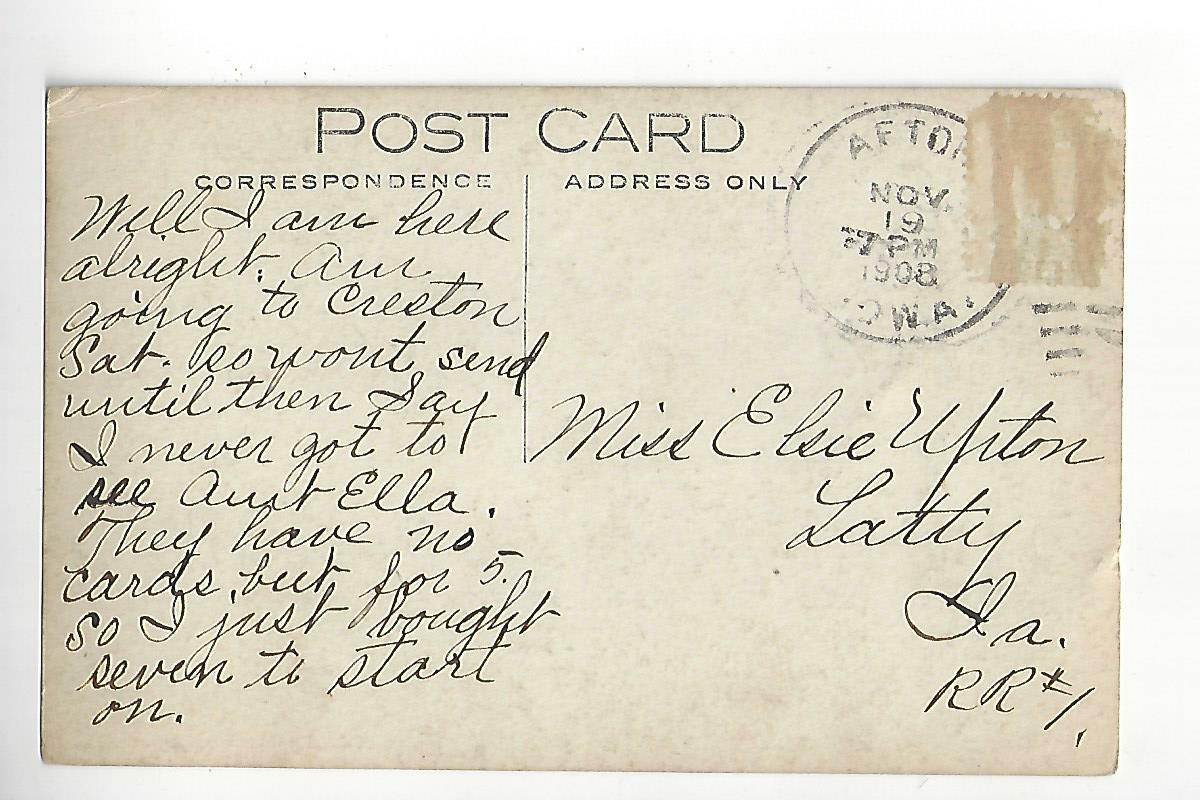 POST CARD
CORRESPONDENCE
ADDRESS ONLY
Well I am here
alright. Am
going to Creston
Sat. so wont send
until then Say
I never got to
see Aunt Ella.
They have no
cards, but for 5.
so I just bought
seven to start
on.
AFTON
NOV.
19
7 PM
1908
IOWA.
Miss Elsie Upton
Latty
Ia.
RR#1.